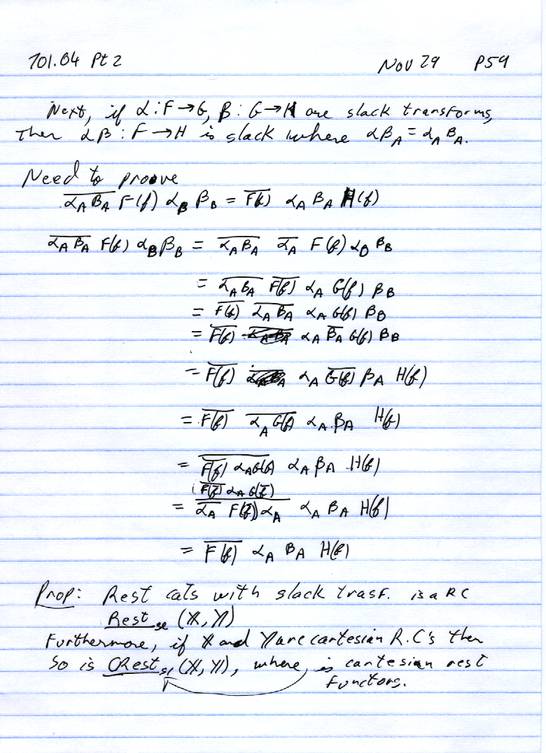 701.04 Pt 2 Nov 29 P59
Next, if α: F→G, β: G→H are slack transforms,
then αβ: F→H is slack where αβ_A = α_A β_A.
Need to prove
\overline{α_A β_A} F(f) α_B β_B = \overline{F(f)} α_A β_A H(f)
\overline{α_A β_A} F(f) α_B β_B = \overline{α_A β_A} \overline{α_A} F(f) α_B β_B
= \overline{α_A β_A} \overline{F(f)} α_A G(f) β_B
= \overline{F(f)} \overline{α_A β_A} α_A G(f) β_B
= \overline{F(f)} α_A \overline{β_A} G(f) β_B
= \overline{F(f)} α_A \overline{G(f)} β_A H(f)
= \overline{F(f)} \overline{α_A G(f)} α_A β_A H(f)
= \overline{\overline{F(f)} α_A G(f)} α_A β_A H(f)
(\overline{F(f)} α_A G(f)
= \overline{\overline{α_A} F(f) α_A} α_A β_A H(f)
= \overline{F(f)} α_A β_A H(f)
Prop: Rest cats with slack trasf. is a RC
Rest_{sl} (X, Y)
Furthermore, if X and Y are cartesian R.C's then
So is CRest_{sl} (X, Y), where is cartesian rest
functors.